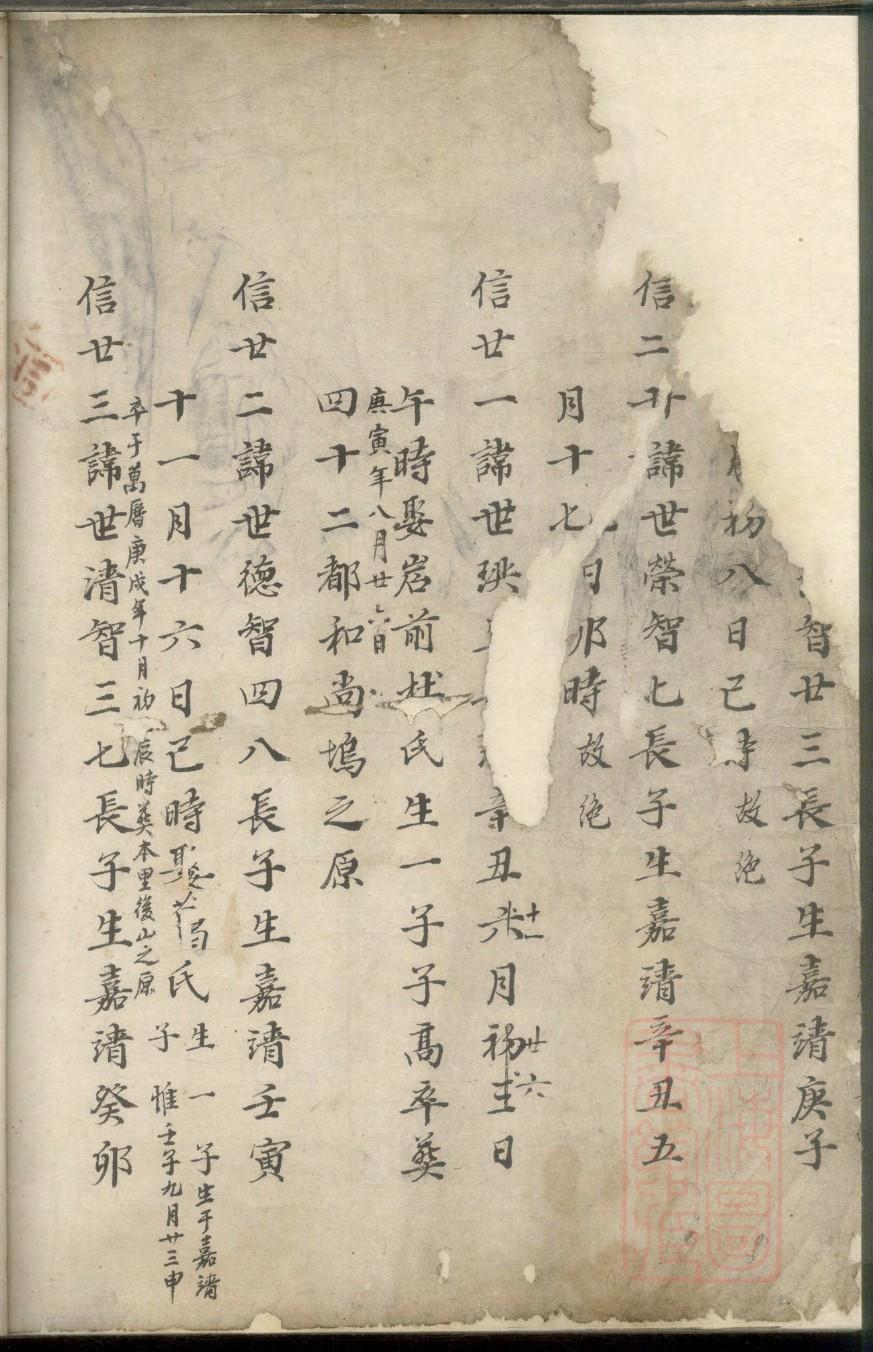 智廿三長子生嘉靖庚子
初八日己時故絶
信二十諱世榮智七長子生嘉靖辛丑五
月十七日卯時故絶
信廿一諱世瑛辛丑十一月廿六日
午時娶岩前杜氏生一子子高卒葬
庚寅年八月廿六日
四十二都和尚塢之原
信廿二諱世德智四八長子生嘉靖壬寅
十一月十六日己時娶氏生一子生于嘉靖
子惟壬子九月廿三申
卒于萬曆庚戌年十月初辰時葬本里後山之原
信廿三諱世清智三七長子生嘉靖癸卯